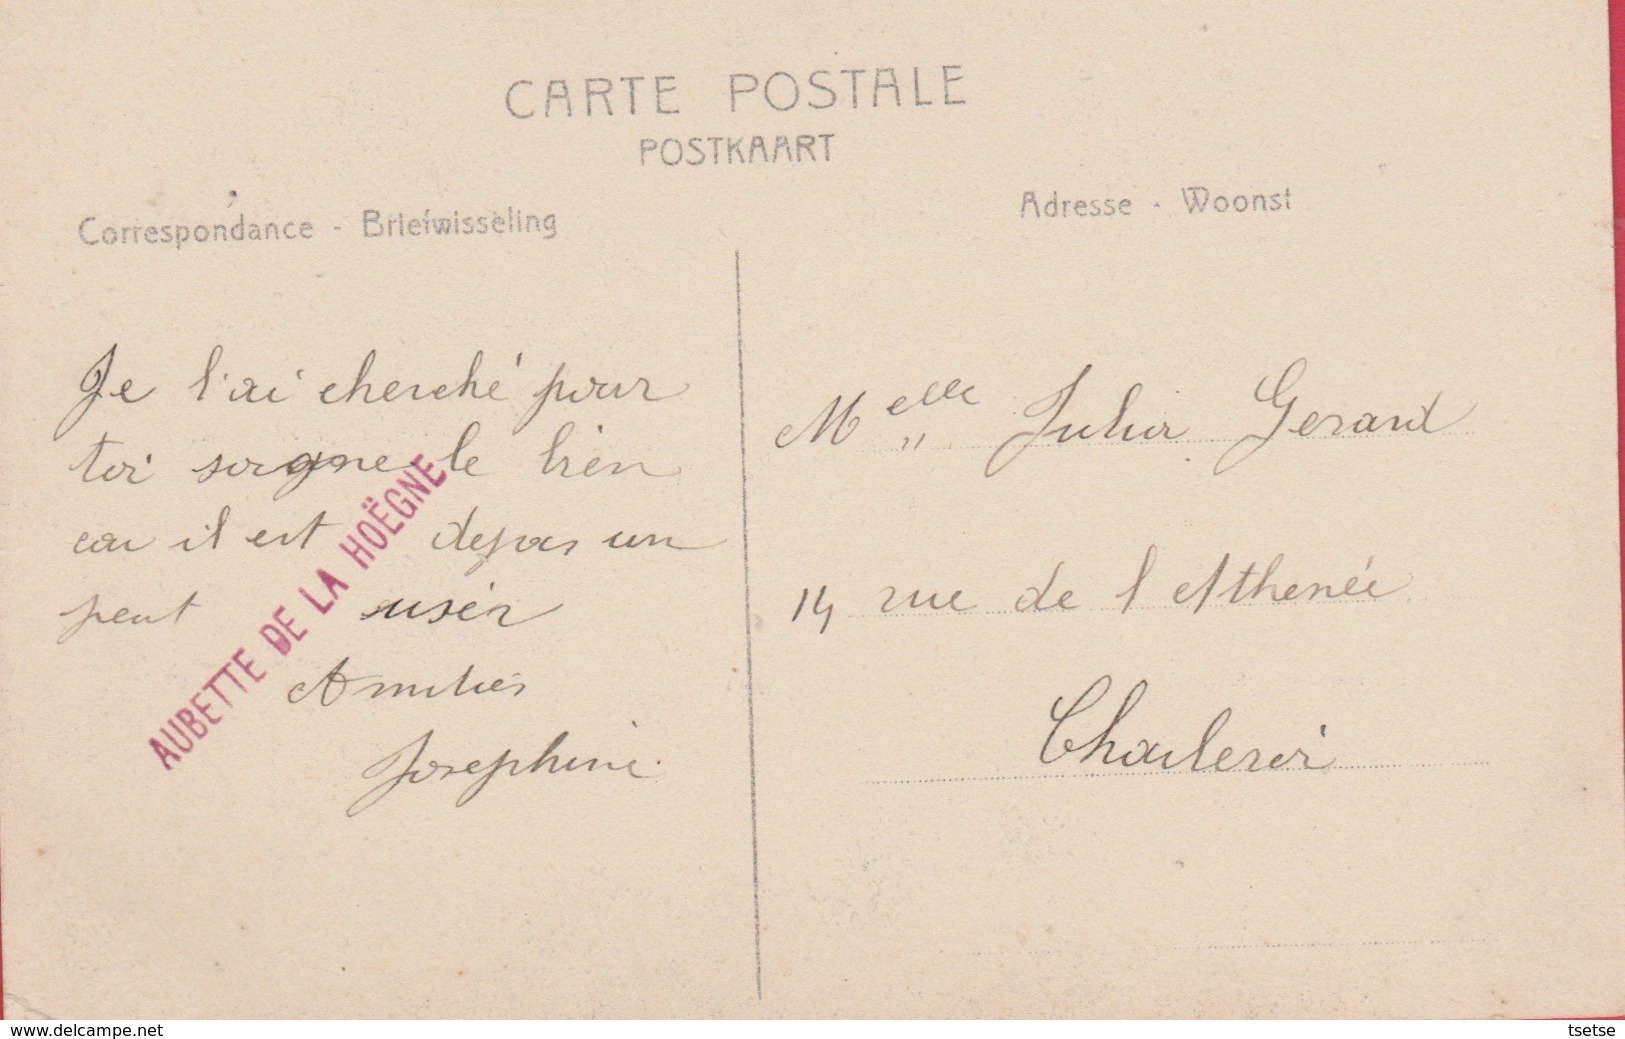 CARTE POSTALE
POSTKAART
Correspondance - Briefwisseling
Adresse - Woonst
Je l'ai cherché pour
toi soigne le bien
car il est depas un
peut usér
Amitiés
Josephine
AUBETTE DE LA HOËGNE
Melle Julia Gerard
14 rue de l Athenée
Charleroi
www.delcampe.net
tsetse